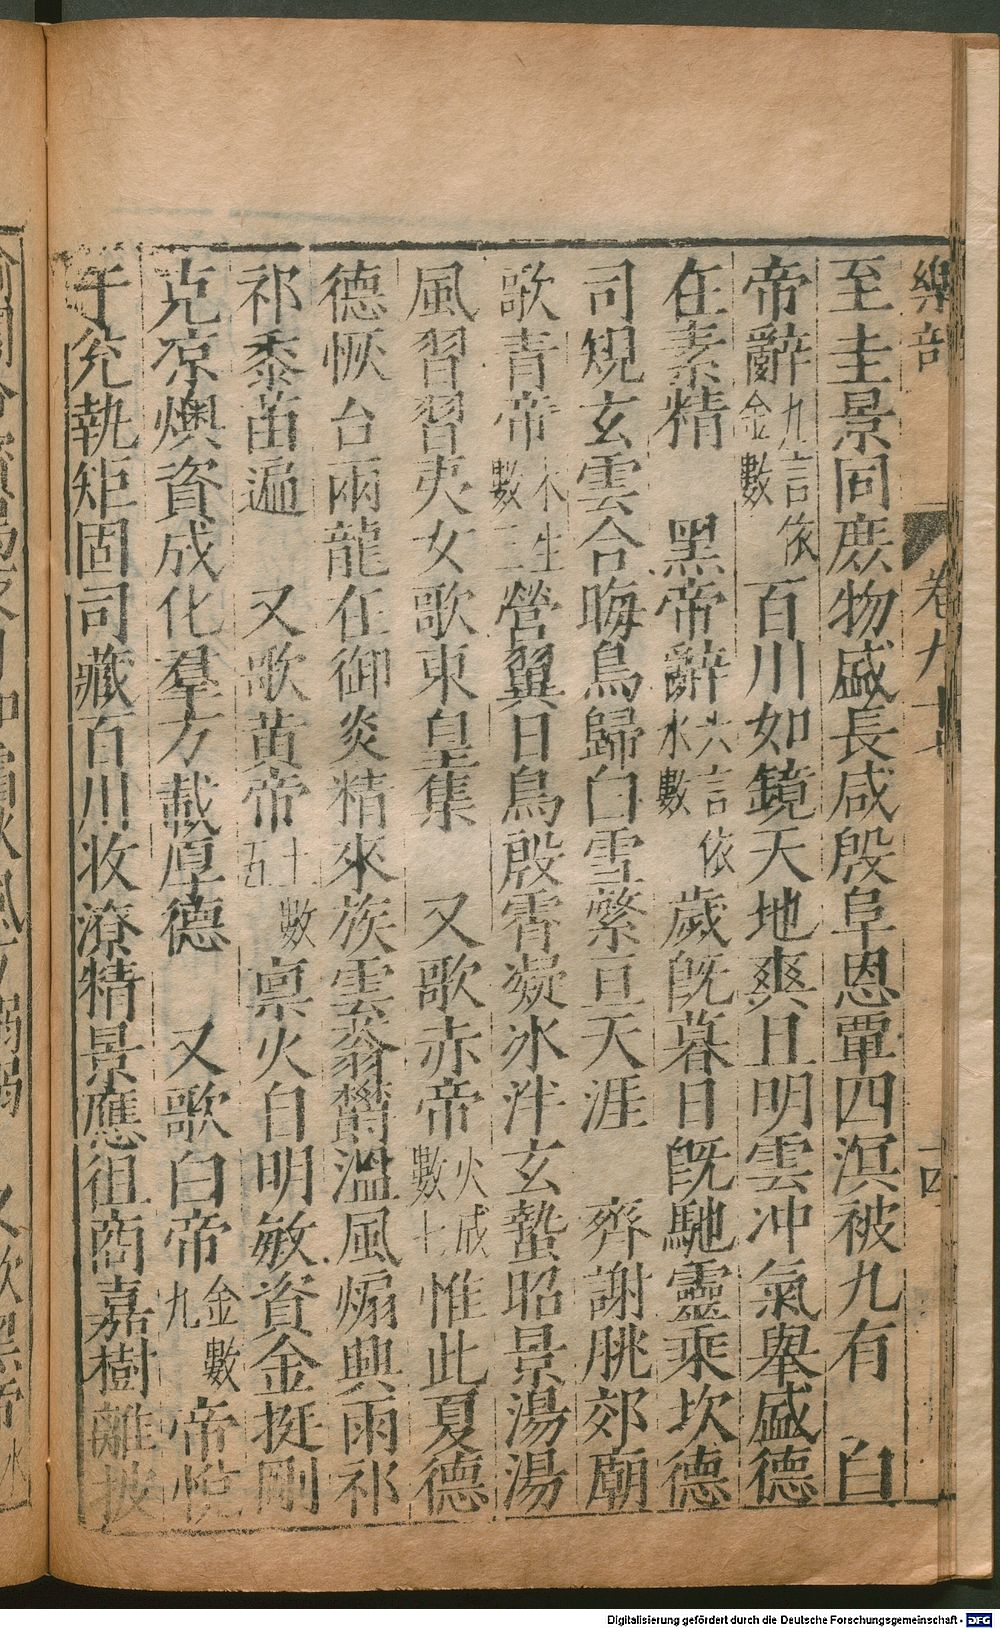 樂部 卷九十七 十四
至圭景同庶物盛長咸殷阜恩覃四溟被九有 白
帝辭九言依金數百川如鏡天地爽且明雲冲氣舉盛德
在素精 黑帝辭六言依水數歲既暮日既馳靈乘坎德
司規玄雲合晦鳥歸白雪繁亘天涯 齊謝朓郊廟
歌青帝木生數三營翼日鳥殷宵凝冰泮玄蟄昭景湯湯
風習習夷女歌東皇集 又歌赤帝火成數七惟此夏德
德恢台兩龍在御炎精來族雲蓊鬱溫風煽興雨祁
祁黍苗遍 又歌黃帝土數五稟火自明敏資金挺剛
克涼燠資成化羣方載厚德 又歌白帝金數九帝悅
于兊執矩固司藏百川收潦精景應徂商嘉樹離披
Digitalisierung gefördert durch die Deutsche Forschungsgemeinschaft - DFG